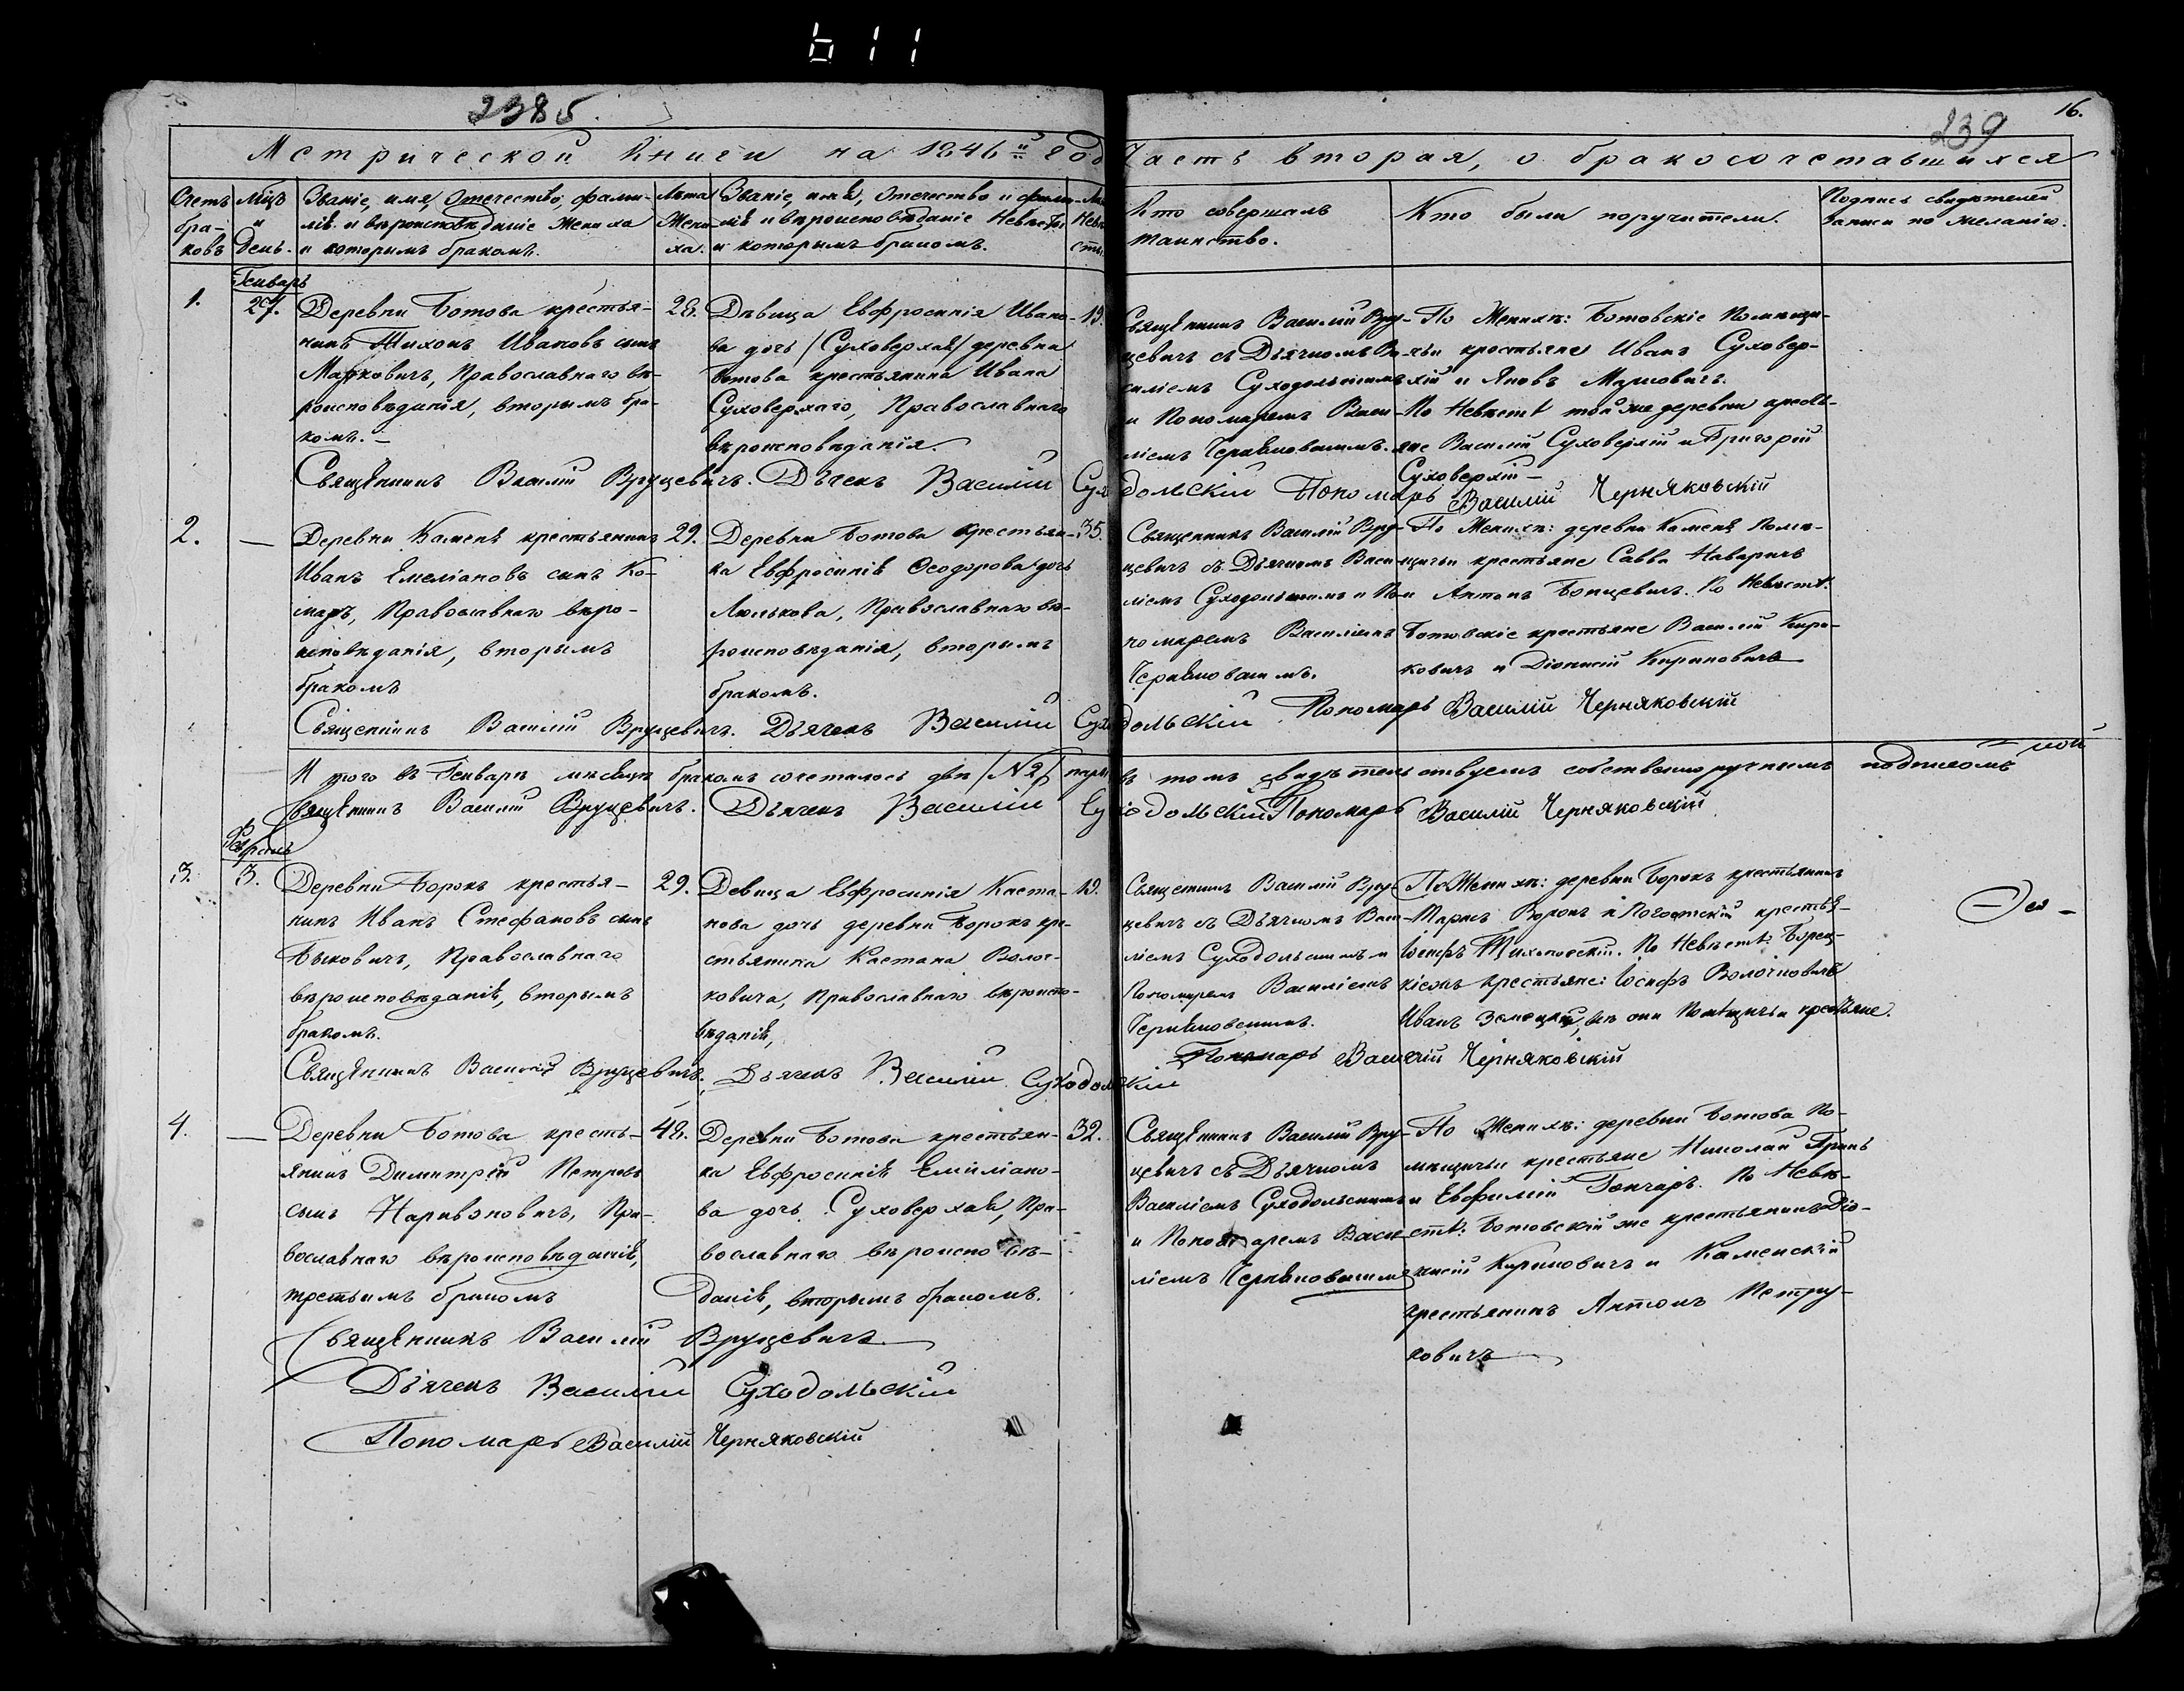 611
2385.
239
16.
Метрической Книги на 1846й год Часть вторая, о бракосочетавшихся
Счетъ бра-ковъ
Мцъ и День.
Званіе, имя, Отечество, фами-
лія и вѣроисповѣданіе Жениха
и которымъ бракомъ.
Лѣта Жени-ха.
Званіе, имя, Отечество и фами-
лія и вѣроисповѣданіе Невѣсты
и которымъ бракомъ.
Невѣ-сты
Кто совершалъ
таинство.
Кто были поручители.
Подпись свидѣтелей
записи по желанію.
Генварь
1.
27.
Деревни Ботова крестья-
нинъ Тихонъ Ивановъ сынъ
Марковичъ, Православнаго вѣ-
роисповѣданія, вторымъ бра-
комъ.-
28.
Дѣвица Евфросинія Ивано-
ва дочь /Суховерхая/ деревни
Ботова крестьянина Ивана
Суховерхаго, Православнаго
вѣроисповѣданія.
19.
Священникъ Василій Вру-
цевичъ съ Дьячкомъ Ва-
силіемъ Суходольскимъ
и Пономаремъ Васи-
ліемъ Черняковскимъ.
По Женихѣ: Ботовскіе Помѣщи-
чьи крестьяне Иванъ Суховер-
хій и Яковъ Марковичъ.
По Невѣстѣ той же деревни кресть-
яне Василій Суховерхій и Григорій
Суховерхій-
Священникъ Василій Вруцевичъ. Дьячекъ Василій Суходольскій Пономарь Василій Черняковскій
2.
—
Деревни Каменя крестьянинъ
Иванъ Емеліановъ сынъ Ко-
маръ, Православнаго вѣро-
исповѣданія, вторымъ
бракомъ
29.
Деревни Ботова крестьян-
ка Евфросинія Ѳеодорова дочь
Люлькова, Православнаго вѣ-
роисповѣданія, вторымъ
бракомъ.
35.
Священникъ Василій Вру-
цевичъ съ Дьячкомъ Васи-
ліемъ Суходольскимъ и По-
номаремъ Василіемъ
Черняковскимъ.
По Женихѣ: деревни Каменя помѣ-
щичьи крестьяне Савва
и Антонъ По Невѣстѣ:
Ботовскіе крестьяне Василій Кири-
ковичъ и Діонисій Кириковичъ
Священникъ Василій Вруцевичъ. Дьячекъ Василій Суходольскій Пономарь Василій Черняковскій
Итого въ Генварѣ мѣсяцѣ бракомъ сочеталось двѣ /№2/ пары въ томъ свидѣтельствуемъ собственноручнымъ подписомъ
Священникъ Василій Вруцевичъ. Дьячекъ Василій Суходольскій Пономарь Василій Черняковскій
Февраль
3.
3.
Деревни Борокъ крестья-
нинъ Иванъ Стефановъ сынъ
Быковичъ, Православнаго
вѣроисповѣданія, вторымъ
бракомъ.
29.
Девица Евфросинія Каета-
нова дочь деревни Борокъ кре-
стьянина Каетана Волоч-
ковича, Православнаго вѣроиспо-
вѣданія,
19.
Священникъ Василій Вру-
цевичъ съ Дьячкомъ Васи-
ліемъ Суходольскимъ и
Пономаремъ Василіемъ
Черняковскимъ.
По Женихѣ: деревни Борокъ крестьянинъ
Воронъ и Погостскій крестья-
Іосифъ Тихоновскій. По Невѣстѣ: Борец-
кіежъ крестьяне: Іосифъ Волочковичъ
Иванъ всѣ они Помѣщичьи крестьяне.
Священникъ Василій Вруцевичъ. Дьячекъ Василій Суходольскій
Пономарь Василій Черняковскій
4.
—
Деревни Ботова кресть-
янинъ Димитрій Петровъ
сынъ Наривоновичъ, Пра-
вославнаго вѣроисповѣданія,
третьимъ бракомъ
48.
Деревни Ботова крестьян-
ка Евфросинія Емиліано-
ва дочь Суховерхая, Пра-
вославнаго вѣроисповѣ-
данія, вторымъ бракомъ.
32.
Священникъ Василій Вру-
цевичъ съ Дьячкомъ
Василіемъ Суходольскимъ
и Пономаремъ Васи-
ліемъ Черняковскимъ
По Женихѣ: деревни Ботова По-
мѣщичьи крестьяне Николай
и Евфимій Гончаръ. По Невѣ-
стѣ: Ботовскій же крестьянинъ Діо-
нисій Кириковичъ и Каменскій
крестьянинъ Антонъ Петру-
ковичъ
Священникъ Василій Вруцевичъ
Дьячекъ Василій Суходольскій
Пономарь Василій Черняковскій